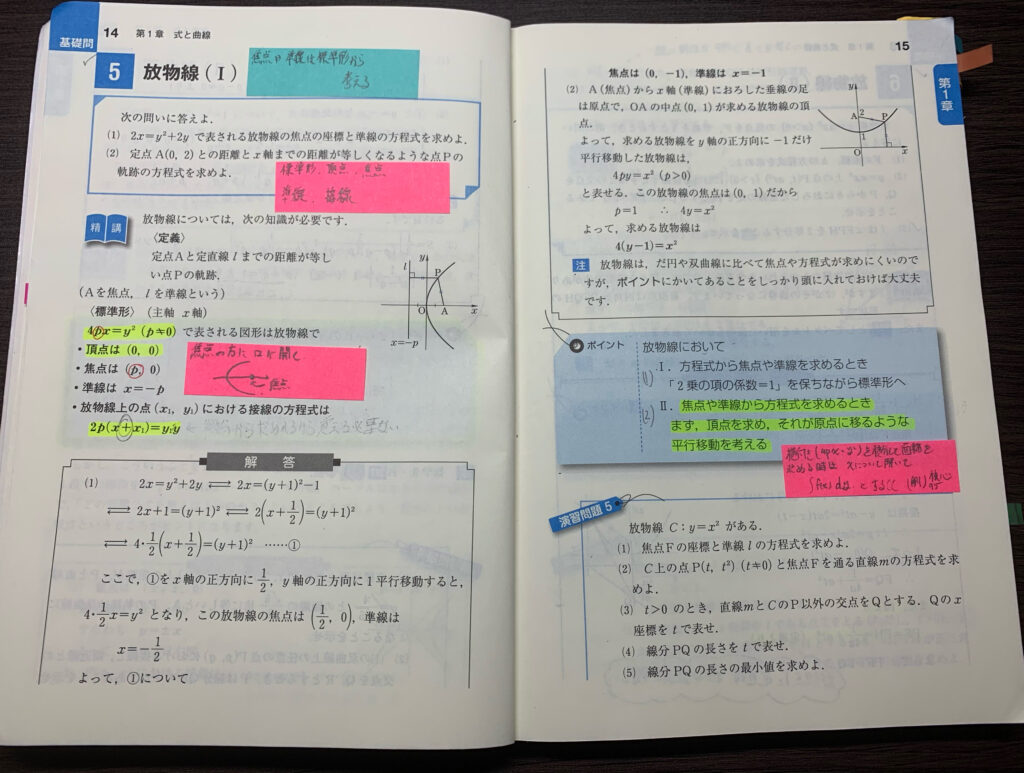 基礎問
14 第1章 式と曲線
5 放物線(Ⅰ)
焦点や準線は標準形から
考える
次の問いに答えよ.
(1) 2x=y²+2y で表される放物線の焦点の座標と準線の方程式を求めよ.
(2) 定点 A(0, 2) との距離と x 軸までの距離が等しくなるような点Pの
軌跡の方程式を求めよ.
標準形, 頂点, 焦点
準線, 接線
精講
放物線については, 次の知識が必要です.
〈定義〉
定点Aと定直線 l までの距離が等し
い点Pの軌跡.
(Aを焦点, l を準線という)
〈標準形〉(主軸 x軸)
4px=y² (p≠0) で表される図形は放物線で
・頂点は (0, 0)
・焦点は (p, 0)
・準線は x=-p
・放物線上の点 (x₁, y₁) における接線の方程式は
2p(x+x₁)=y₁y
焦点の方に口を開く
焦点
l
y
P
O
A
x
x=-p
解答
(1) 2x=y²+2y ⟺ 2x=(y+1)²-1
⟺ 2x+1=(y+1)² ⟺ 2(x+1/2)=(y+1)²
⟺ 4・1/2(x+1/2)=(y+1)² ……①
ここで, ①を x 軸の正方向に 1/2, y 軸の正方向に 1 平行移動すると,
4・1/2x=y² となり, この放物線の焦点は (1/2, 0), 準線は
x=-1/2
よって, ①について
15
第1章
焦点は (0, -1), 準線は x=-1
(2) A(焦点)から x 軸(準線)におろした垂線の足
は原点で, OA の中点 (0, 1) が求める放物線の頂
点.
よって, 求める放物線を y 軸の正方向に -1 だけ
平行移動した放物線は,
4py=x² (p>0)
と表せる. この放物線の焦点は (0, 1) だから
p=1 ∴ 4y=x²
よって, 求める放物線は
4(y-1)=x²
y
A
2
P
1
O
x
注 放物線は, だ円や双曲線に比べて焦点や方程式が求めにくいので
すが, ポイントにかいてあることをしっかり頭に入れておけば大丈夫
です.
ポイント
放物線において
(1) Ⅰ. 方程式から焦点や準線を求めるとき
「2乗の項の係数=1」を保ちながら標準形へ
(2) Ⅱ. 焦点や準線から方程式を求めるとき
まず, 頂点を求め, それが原点に移るような
平行移動を考える
演習問題 5
放物線 C:y=x² がある.
(1) 焦点Fの座標と準線 l の方程式を求めよ.
(2) C上の点 P(t, t²) (t≠0) と焦点Fを通る直線 m の方程式を求
めよ.
(3) t>0 のとき, 直線 m と C の P 以外の交点を Q とする. Q の x
座標を t で表せ.
(4) 線分 PQ の長さを t で表せ.
(5) 線分 PQ の長さの最小値を求めよ.